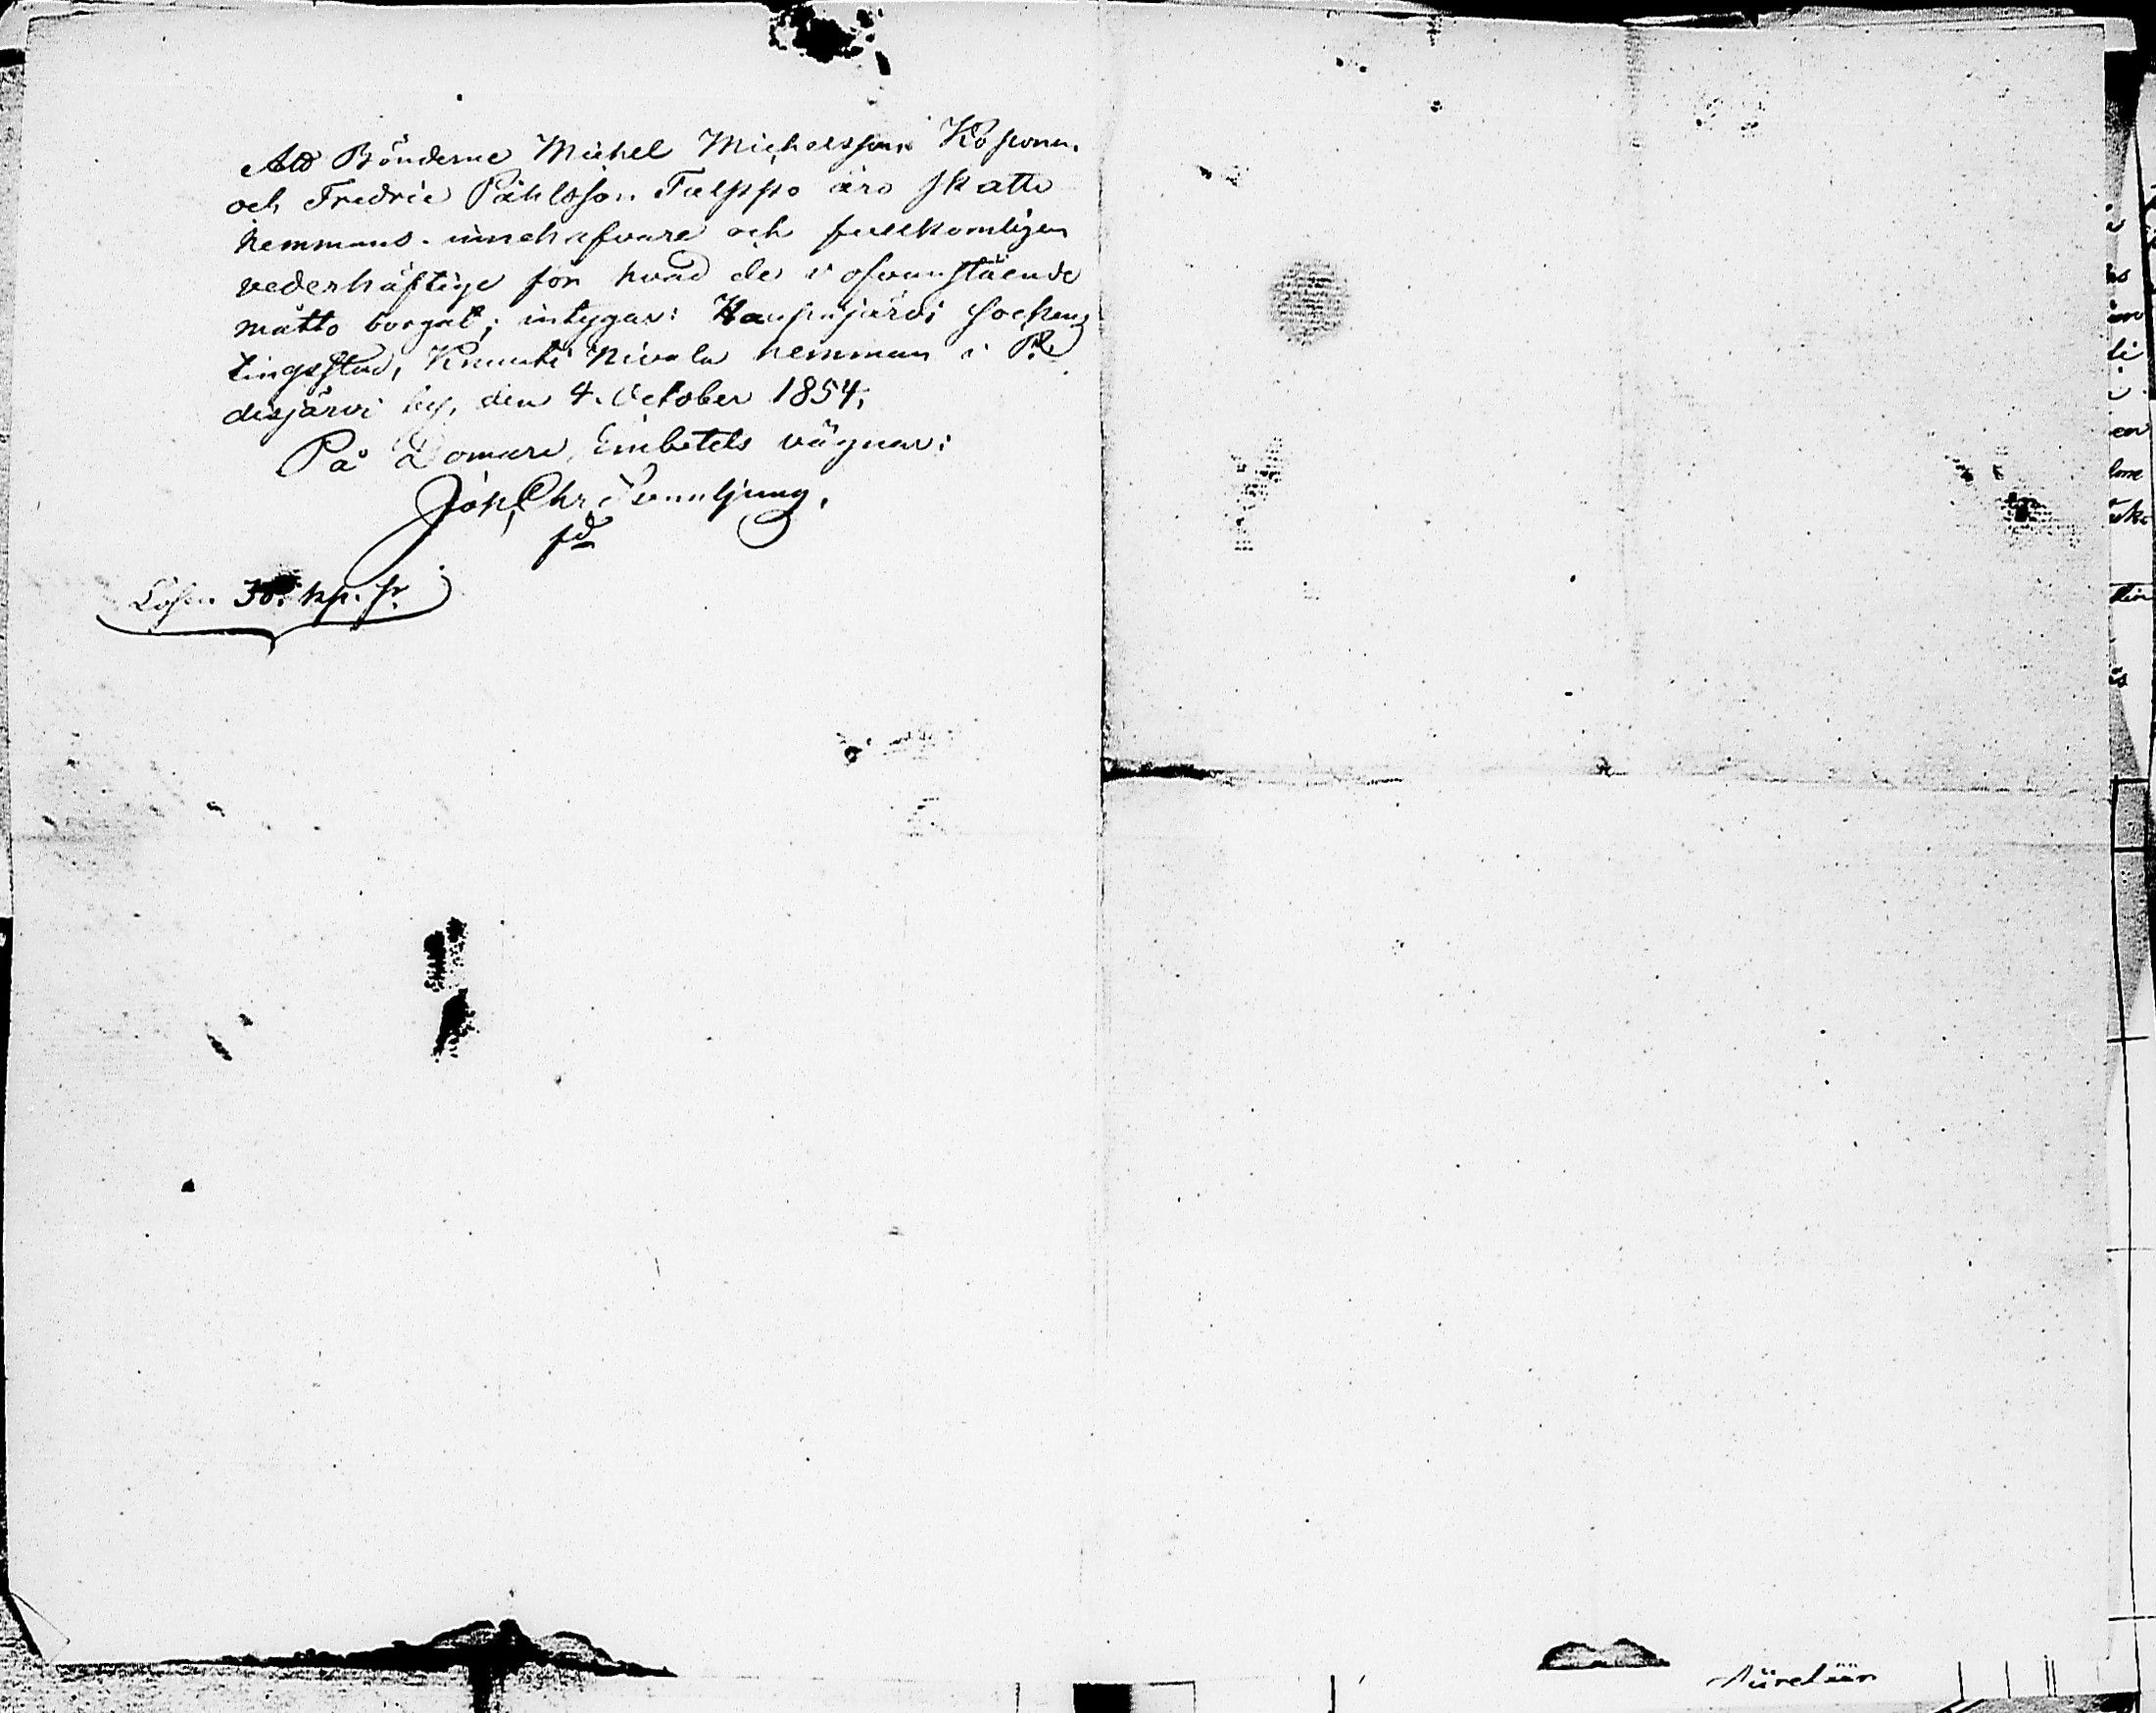 Att Bönderne Michel Michelsson Koponen
och Fredric Påhlsson Tulppo äro skatte
hemmans-innehafvare och fullkomligen
vederhäftige för hvad de i ofvanstående
måtto borgat; intygar: Haapajärvi Sockens
tingsstad, Knuuti Nivala hemman i Pi
disjärvi by, den 4. October 1854;
På Domare Embetets vägnar:
Joh. Chr. Svanljung.
fd
Lösen 30. kop. Sr